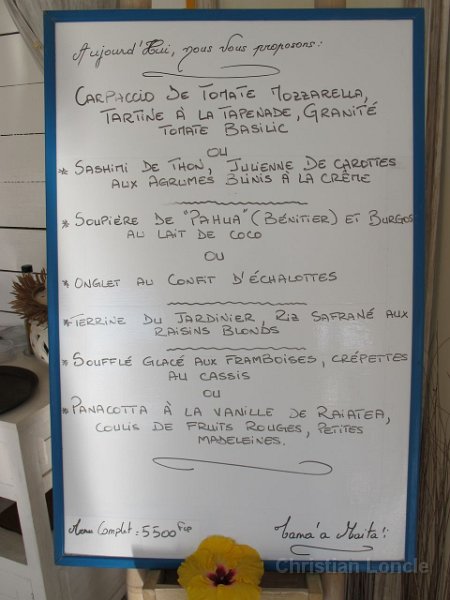 Aujourd'Hui, nous vous proposons:
CARPACCIO DE TOMATE MOZZARELLA,
TARTINE À LA TAPENADE, GRANITÉ
TOMATE BASILIC
OU
* SASHIMI DE THON, JULIENNE DE CAROTTES
AUX AGRUMES BLINIS À LA CRÈME
* SOUPIÈRE DE "PAHUA" (BÉNITIER) ET BURGOS
AU LAIT DE COCO
OU
* ONGLET AU CONFIT D'ÉCHALOTTES
* TERRINE DU JARDINIER, RIZ SAFRANÉ AUX
RAISINS BLONDS
* SOUFFLÉ GLACÉ AUX FRAMBOISES, CRÉPETTES
AU CASSIS
OU
* PANACOTTA À LA VANILLE DE RAIATEA,
COULIS DE FRUITS ROUGES, PETITES
MADELEINES.
Menu Complet : 5500 Fcp
Tama'a Maita'i
Christian Loncle